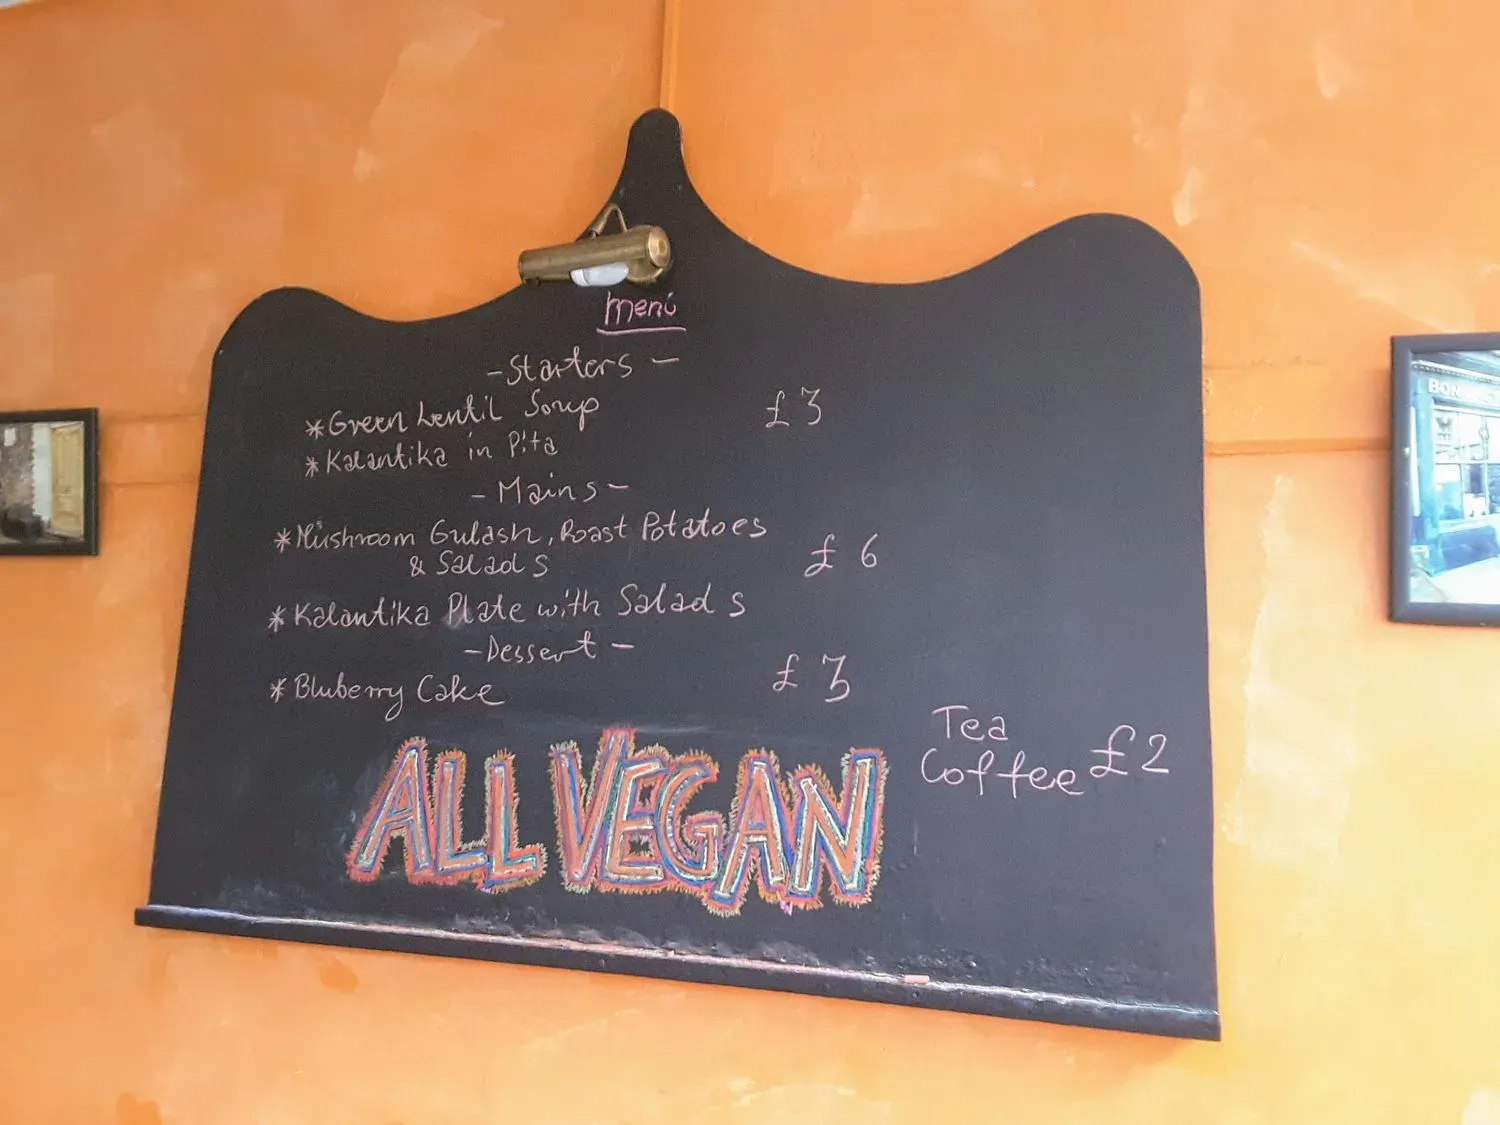 Menú
- Starters -
* Green Lentil Soup £3
* Kalantika in Pita
- Mains -
* Mushroom Gulash, Roast Potatoes
& Salads £6
* Kalantika Plate with Salads
- Dessert -
* Bluberry Cake £3
Tea
Coffee £2
ALL VEGAN